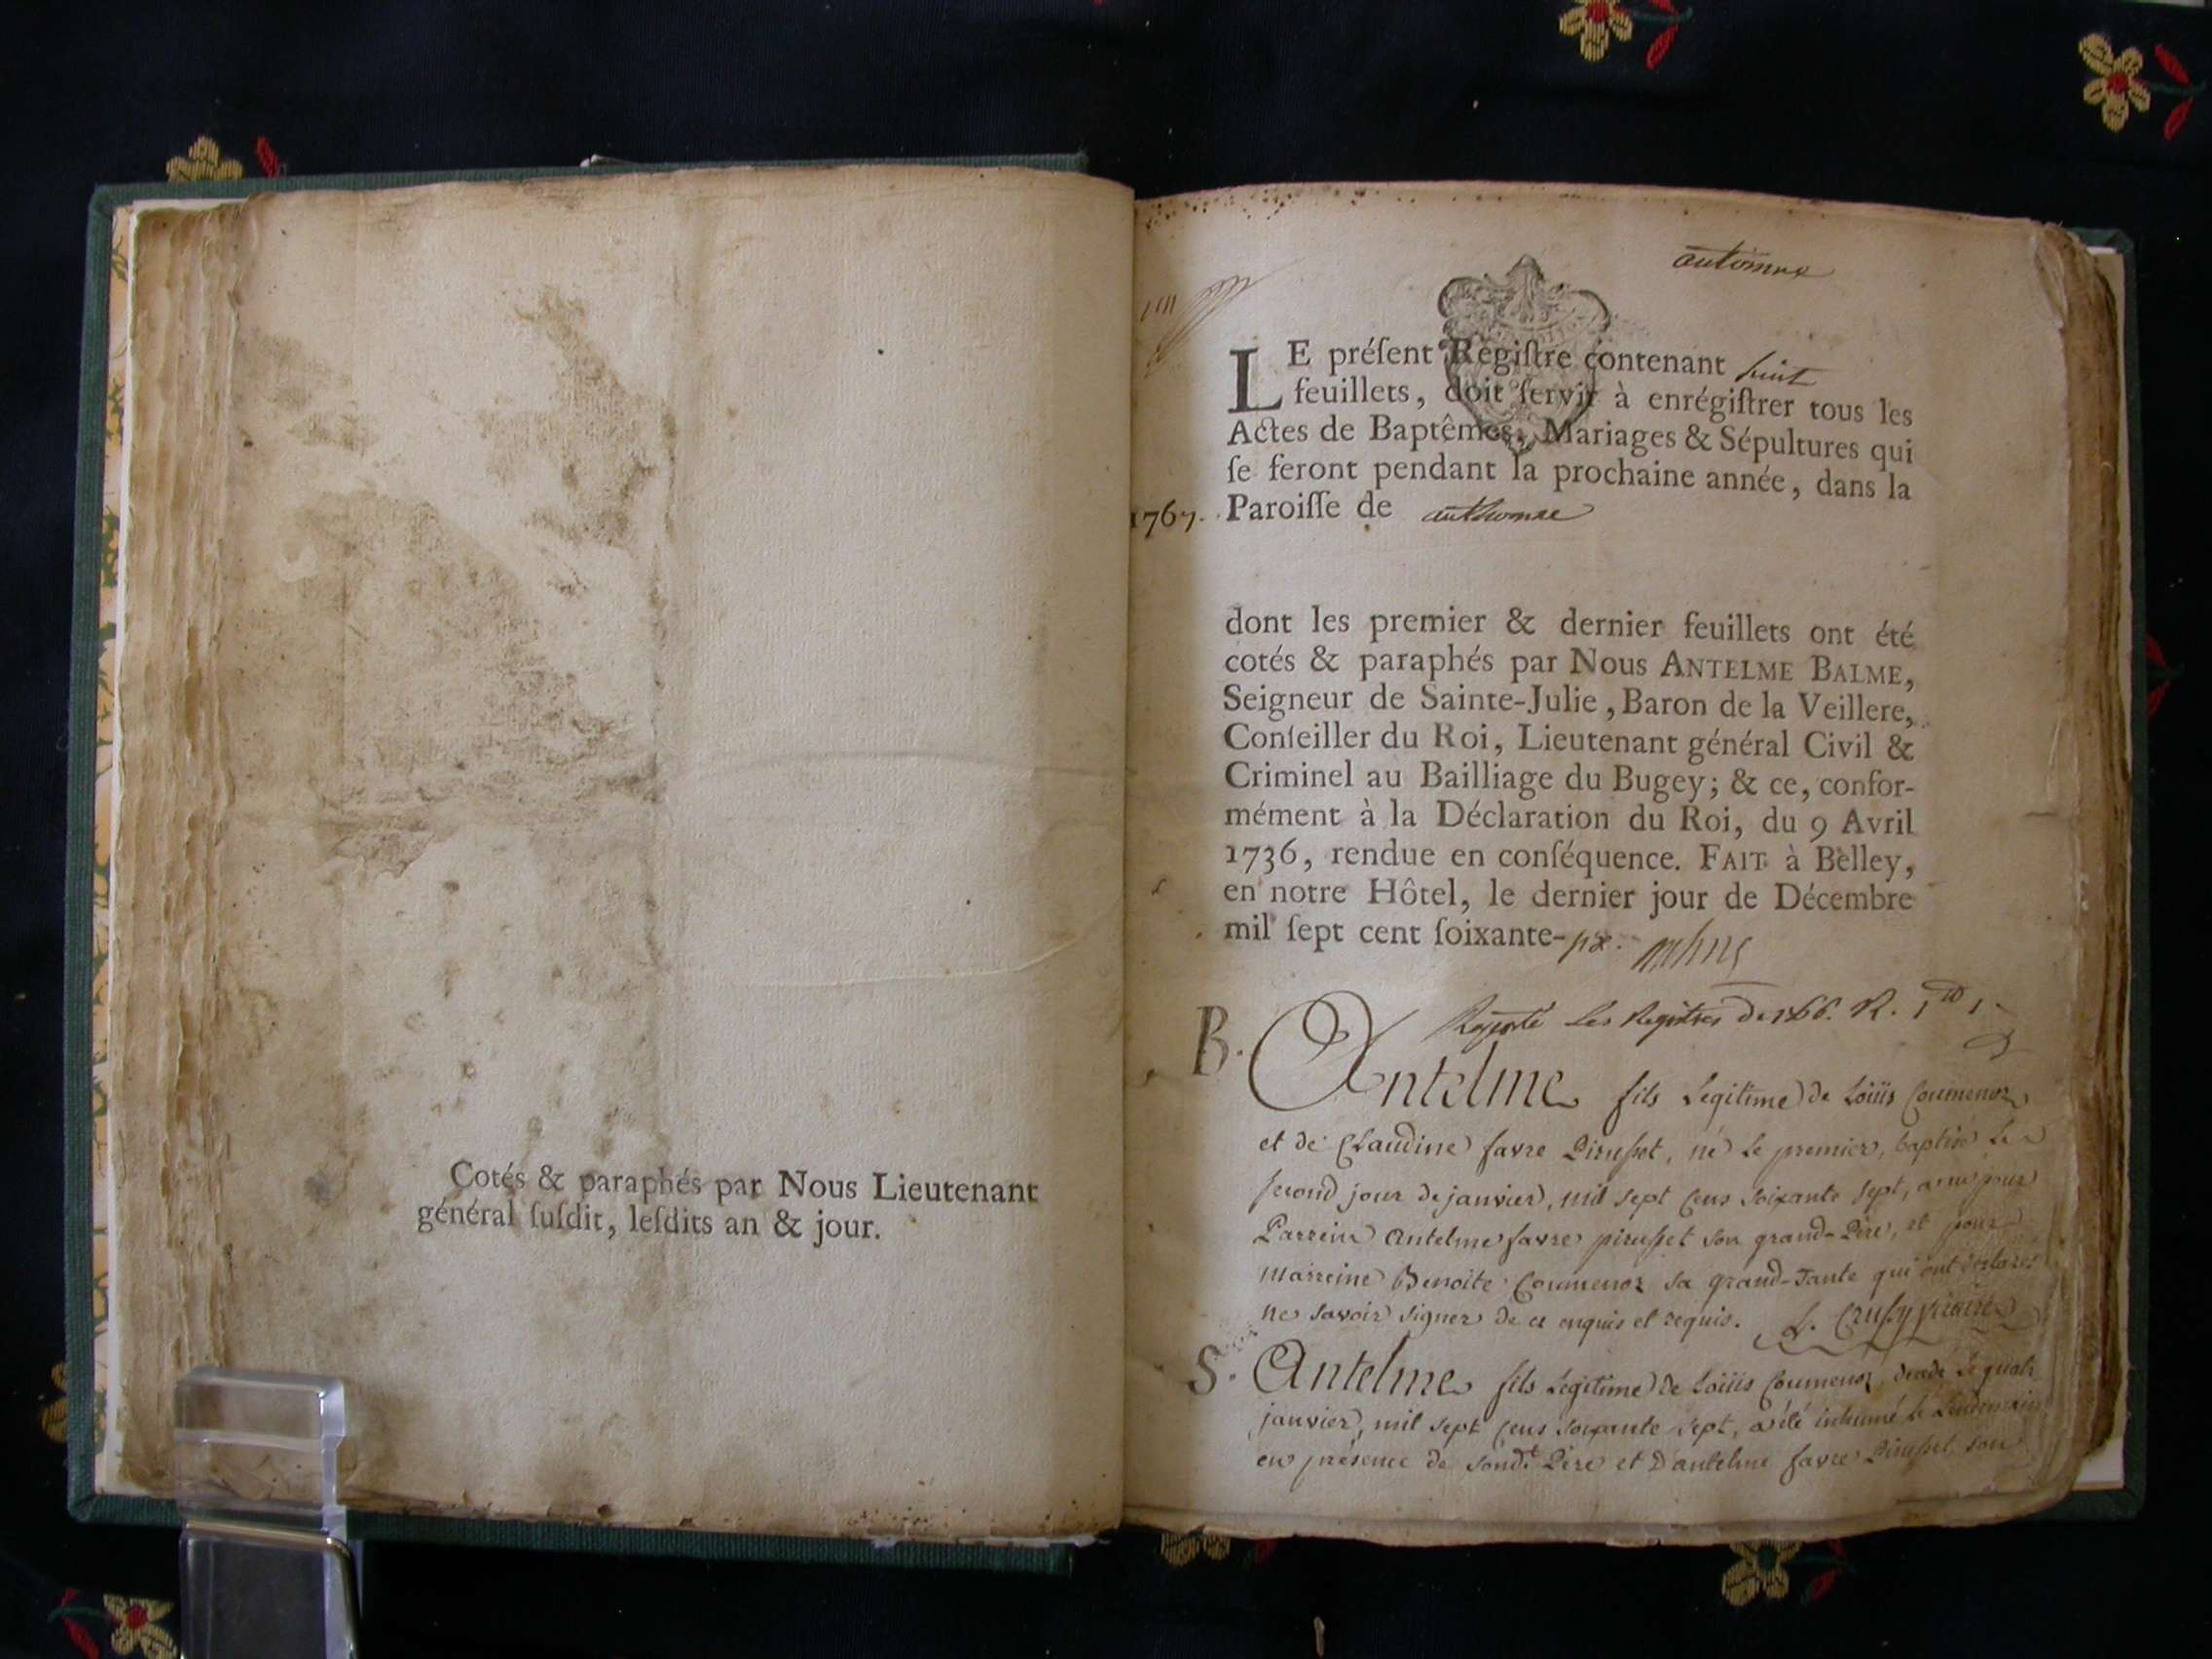 Cotés & paraphés par Nous Lieutenant
général ſuſdit, leſdits an & jour.
automne
LE préſent Regiſtre contenant huit
feuillets, doit ſervir à enrégiſtrer tous les
Actes de Baptêmes, Mariages & Sépultures qui
ſe feront pendant la prochaine année, dans la
1767. Paroiſſe de authomne
dont les premier & dernier feuillets ont été
cotés & paraphés par Nous ANTELME BALME,
Seigneur de Sainte-Julie, Baron de la Veillere,
Conſeiller du Roi, Lieutenant général Civil &
Criminel au Bailliage du Bugey; & ce, confor-
mément à la Déclaration du Roi, du 9 Avril
1736, rendue en conſéquence. FAIT à Belley,
en notre Hôtel, le dernier jour de Décembre
mil ſept cent ſoixante-six.
les Registres de 1766. R.
B. Antelme fils Legitime de Loüis Coumenoz
et de Claudine favre Pirusset, né Le premier, baptisé Le
second jour de janvier, mil sept Cens soixante sept, a eu pour
Parrein antelme favre pirusset son grand-Père, et pour
marreine Benoite Coumenoz sa grand-Tante qui ont déclarés
ne savoir signer de ce enquis et requis.
S. Antelme fils Legitime de Loüis Coumenoz, decedé Le quatr
janvier, mil sept Cens soixante sept, a été inhumé le Lendemain
en présence de sond.t Père et D'antelme favre Pirusset son